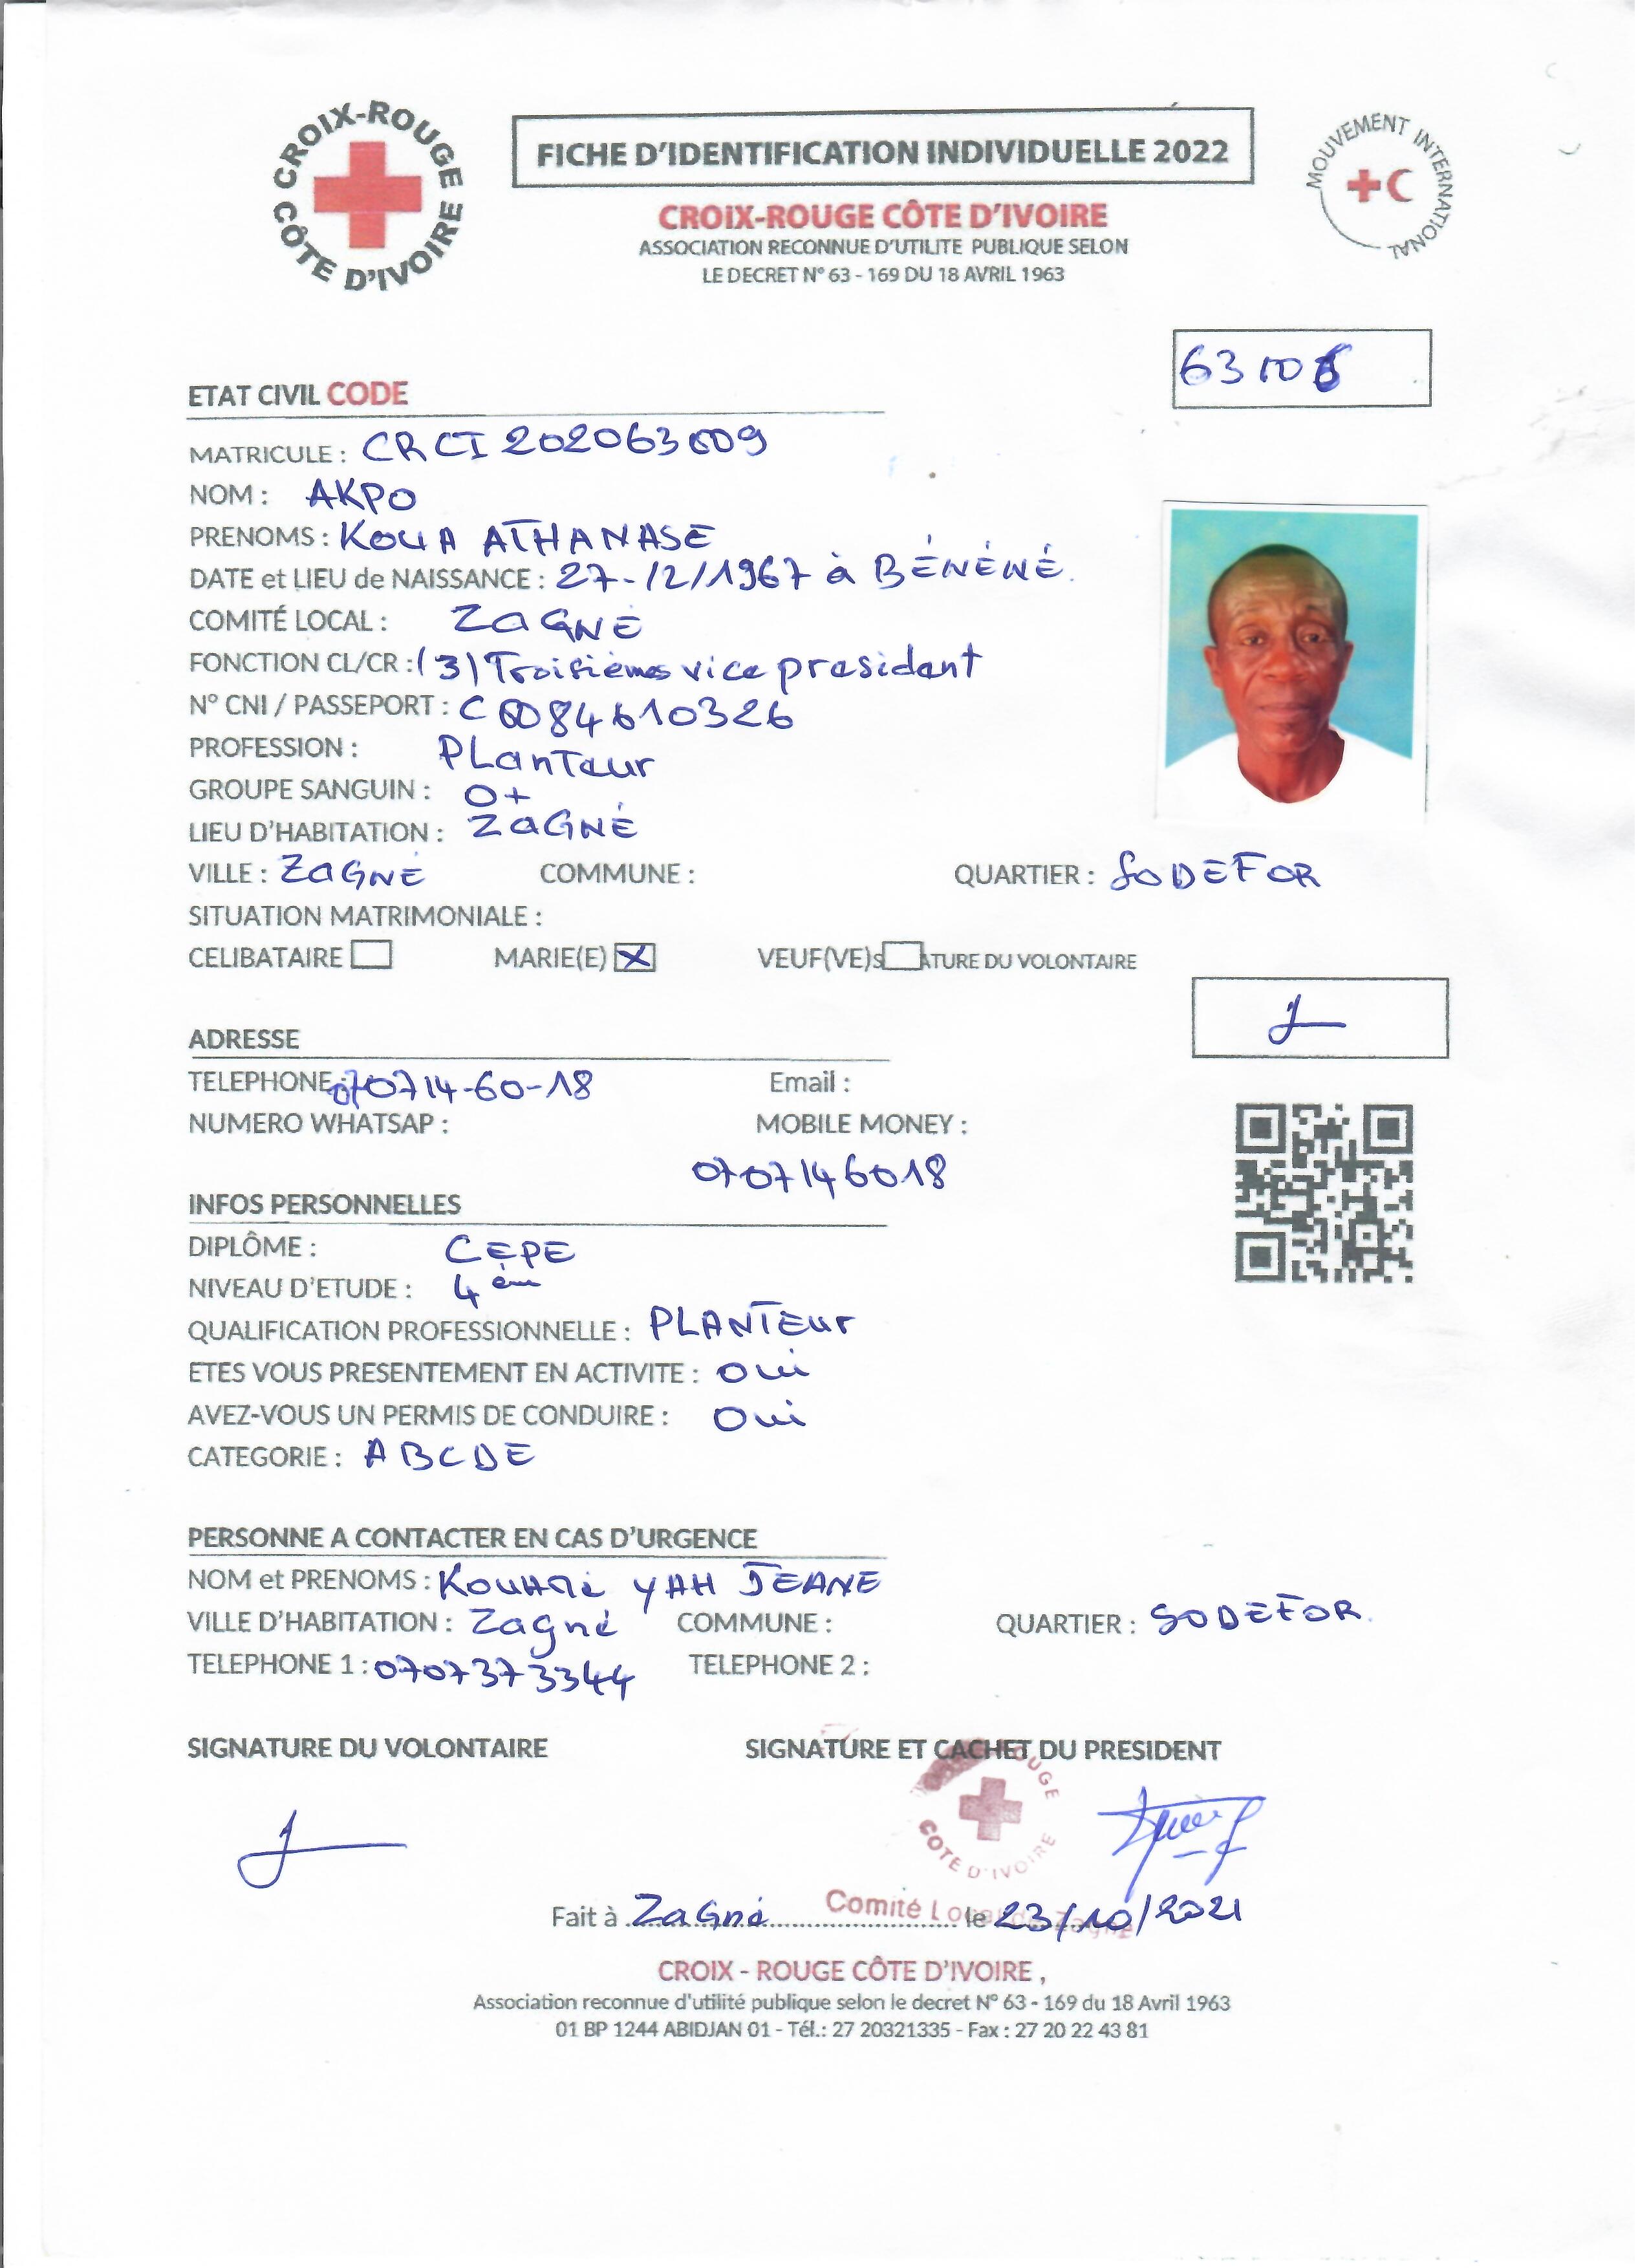 CROIX-ROUGE CÔTE D'IVOIRE
FICHE D'IDENTIFICATION INDIVIDUELLE 2022
MOUVEMENT INTERNATIONAL
CROIX-ROUGE CÔTE D'IVOIRE
ASSOCIATION RECONNUE D'UTILITE PUBLIQUE SELON
LE DECRET N° 63 - 169 DU 18 AVRIL 1963
ETAT CIVIL CODE
MATRICULE : CRCI 202063009
NOM : AKPO
PRENOMS : KOUA ATHANASE
DATE et LIEU de NAISSANCE : 27-12/1967 à BÉNÉNÉ
COMITÉ LOCAL : ZAGNÉ
FONCTION CL/CR : (3) Troisième vice president
N° CNI / PASSEPORT : C 0084610326
PROFESSION : PLanTeur
GROUPE SANGUIN : O+
LIEU D'HABITATION : ZAGNÉ
VILLE : ZAGNÉ COMMUNE : QUARTIER : SODEFOR
SITUATION MATRIMONIALE :
CELIBATAIRE MARIE(E) X VEUF(VE)S ATURE DU VOLONTAIRE
ADRESSE
TELEPHONE : 070714-60-18 Email :
NUMERO WHATSAP : MOBILE MONEY :
0707146018
INFOS PERSONNELLES
DIPLÔME : CEPE
NIVEAU D'ETUDE : 4 èm
QUALIFICATION PROFESSIONNELLE : PLANTEur
ETES VOUS PRESENTEMENT EN ACTIVITE : Oui
AVEZ-VOUS UN PERMIS DE CONDUIRE : Oui
CATEGORIE : ABCDE
PERSONNE A CONTACTER EN CAS D'URGENCE
NOM et PRENOMS : YAH JEANE
VILLE D'HABITATION : Zagné COMMUNE : QUARTIER : SODEFOR
TELEPHONE 1 : 0707373344 TELEPHONE 2 :
SIGNATURE DU VOLONTAIRE SIGNATURE ET CACHET DU PRESIDENT
ROUGE
COTE D'IVOIRE
Comité Local de Zagné
Fait à Zagné le 23/10/2021
CROIX - ROUGE CÔTE D'IVOIRE ,
Association reconnue d'utilité publique selon le decret N° 63 - 169 du 18 Avril 1963
01 BP 1244 ABIDJAN 01 - Tél.: 27 20321335 - Fax : 27 20 22 43 81